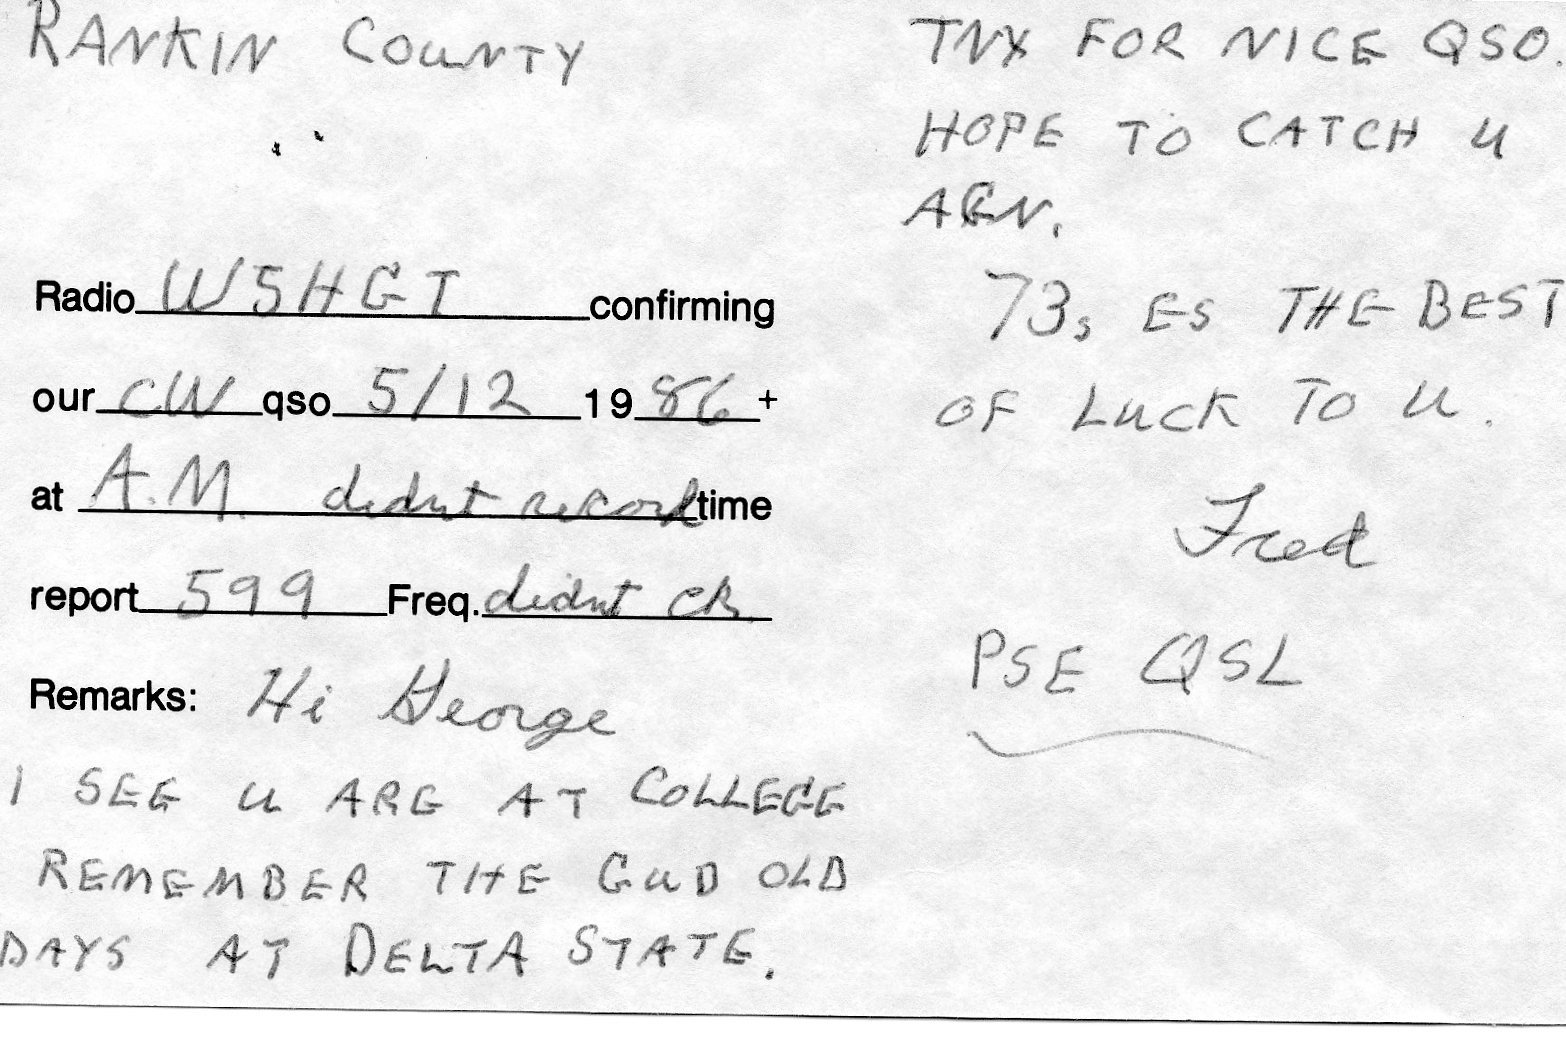 RANKIN COUNTY
Radio W5HGT confirming
our CW qso 5/12 1986 +
at A.M. didnt record time
report 599 Freq. didnt ck
Remarks: Hi George
I SEE U ARE AT COLLEGE
REMEMBER THE GUD OLD
DAYS AT DELTA STATE.
TNX FOR NICE QSO.
HOPE TO CATCH U
AGN.
73s ES THE BEST
OF LUCK TO U.
Fred
PSE QSL